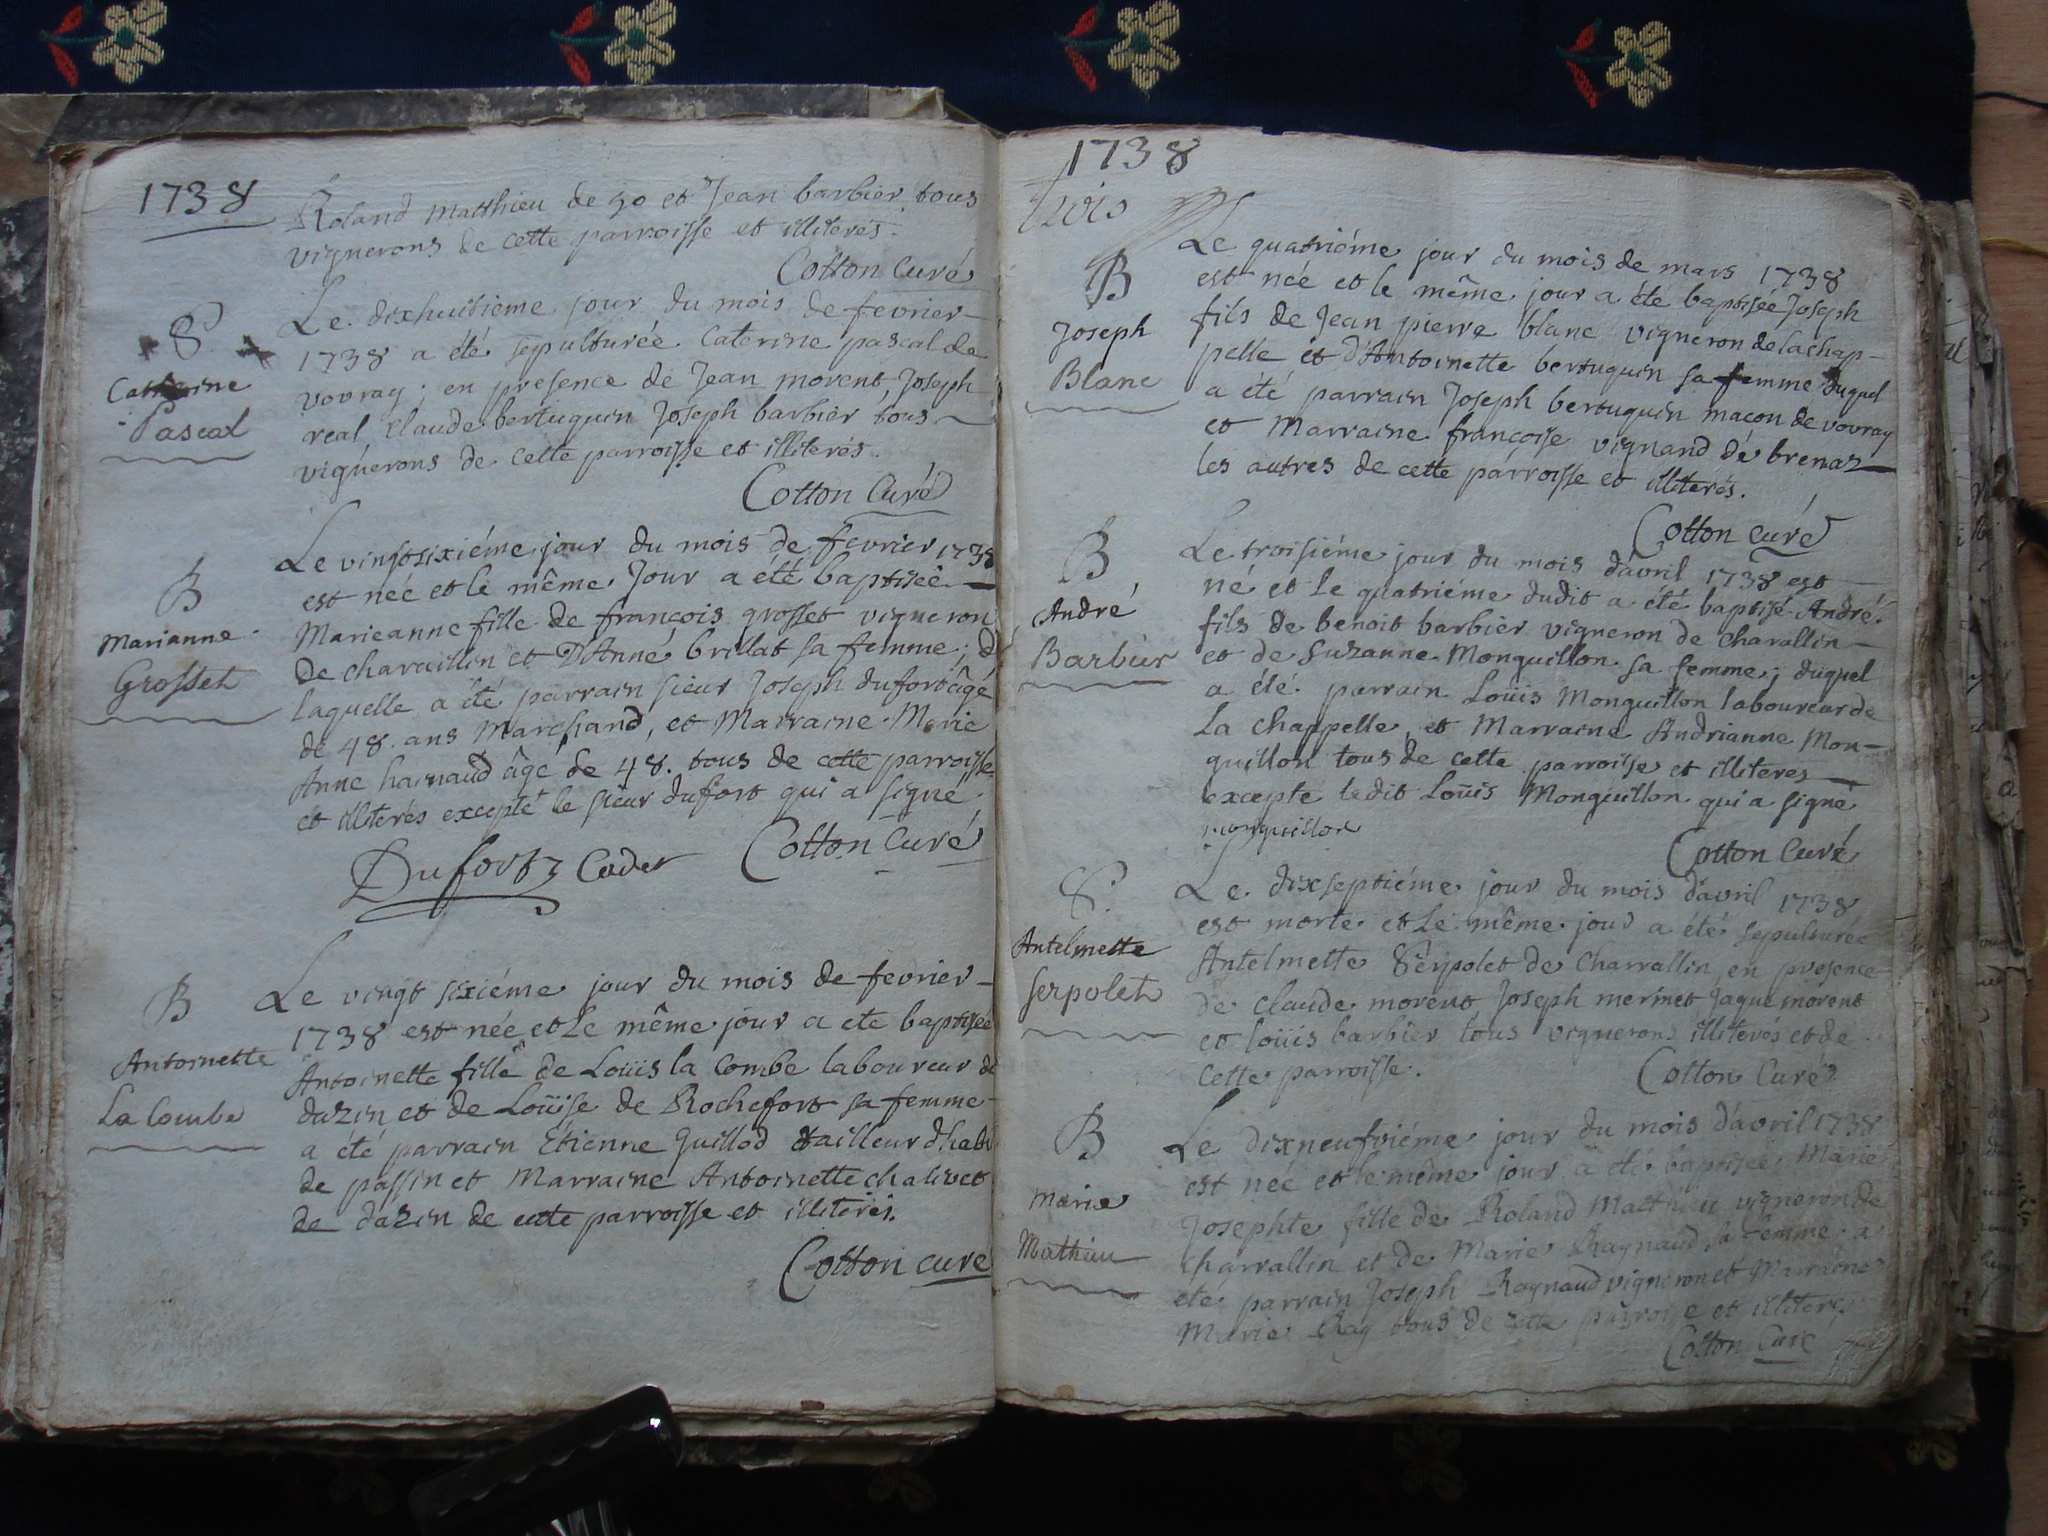 1738
Roland Matthieu de 50 et Jean barbier tous
vignerons de cette parroisse et illiterés.
Cotton Curé
S.
Catherine
Pascal
Le dixhuitieme jour du mois de fevrier
1738 a été sepulturée Caterine pascal de
vovray; en presence de Jean morent Joseph
real Claude bertuquin Joseph barbier tous
vignerons de cette parroisse et illiterés.
Cotton Curé
B
Marianne
Grosset
Le vingtsixiéme jour du mois de fevrier 1738
est née et le même Jour a été baptisée
Marieanne fille de francois grosset vigneron
de charaillin et D'Anne brillat sa femme; d
laquelle a été parrain sieur Joseph dufort âgé
de 48 ans Marchand, et Marraine Marie
Anne harnaud âge de 48. tous de cette parroisse
et illiterés excepté le sieur dufort qui a signé
Dufort Cotton Curé
B
Antoinette
La Combe
Le vingt sixiéme jour du mois de fevrier
1738 est née et le même jour a eté baptisée
Antoinette fille de Loüis la Combe laboureur de
dazin et de Loüise de Rochefort sa femme
a été parrain Etienne Guillod tailleur d'habi
de passin et Marraine Antoinette chalivet
de dazin de cette parroisse et illiterés.
Cotton curé
1738
B
Joseph
Blanc
Le quatriéme jour du mois de mars 1738
est née et le même jour a été baptisée Joseph
fils de Jean pierre blanc vigneron de la chap-
pelle et d'Antoinette bertuquin sa femme duquel
a été parrain Joseph bertuquin macon de vovray
et Marraine françoise vignand de brenaz
les autres de cette parroisse et illiterés.
Cotton curé
B
André
Barbier
Le troisiéme jour du mois d'avril 1738 est
né et le quatriéme dudit a été baptisé André
fils de benoit barbier vigneron de charallin
et de Suzanne Monguillon sa femme; duquel
a été parrain Loüis Monguillon laboureur de
la chappelle et Marraine Andrianne Mon-
guillon tous de cette parroisse et illiteres
excepte ledit Loüis Monguillon qui a signé
monguillon
Cotton Curé
S.
Antelmette
Serpolet
Le dixseptiéme jour du mois d'avril 1738
est morte et le même jour a été sepulturée
Antelmette Serpolet de Charrallin en presence
de claude morent Joseph mermet Jaque morent
et loüis barbier tous vignerons illiterés et de
cette parroisse.
Cotton Curé
B
Marie
Mathieu
Le dixneufviéme jour du mois d'avril 1738
est née et le même jour a été baptisée Marie
Josephte fille de Roland Matthieu vigneron de
charrallin et de Marie Raynaud sa femme a
eté parrain Joseph Raynaud vigneron et Marraine
Marie Ray tous de cette parroisse et illiteres
Cotton Curé